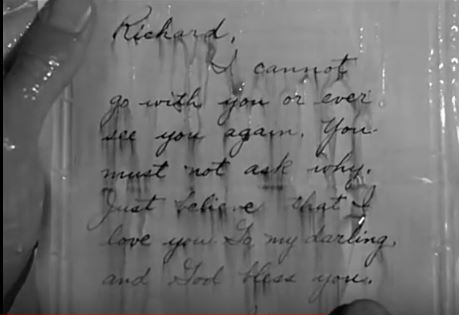 Richard,
I cannot
go with you or ever
see you again. You
must not ask why.
Just believe that I
love you. Go my darling,
and God bless you.